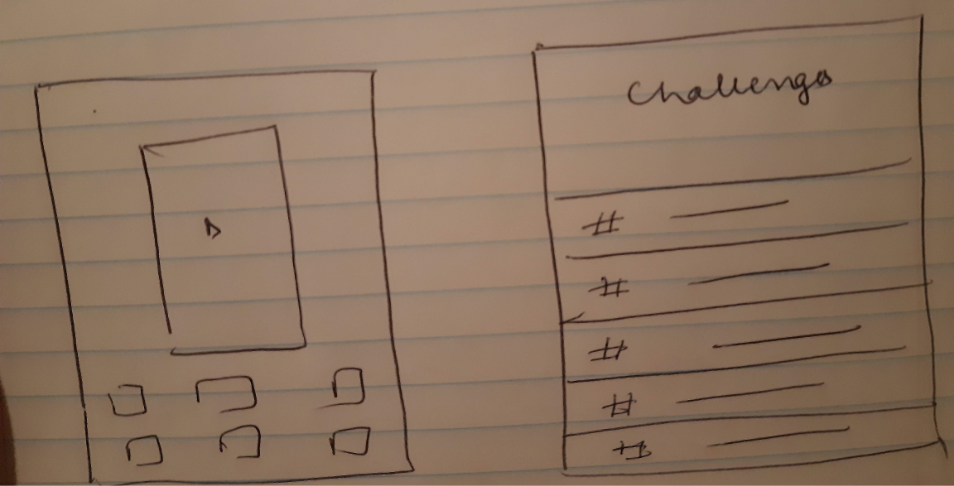 Challenges
#
#
#
#
#